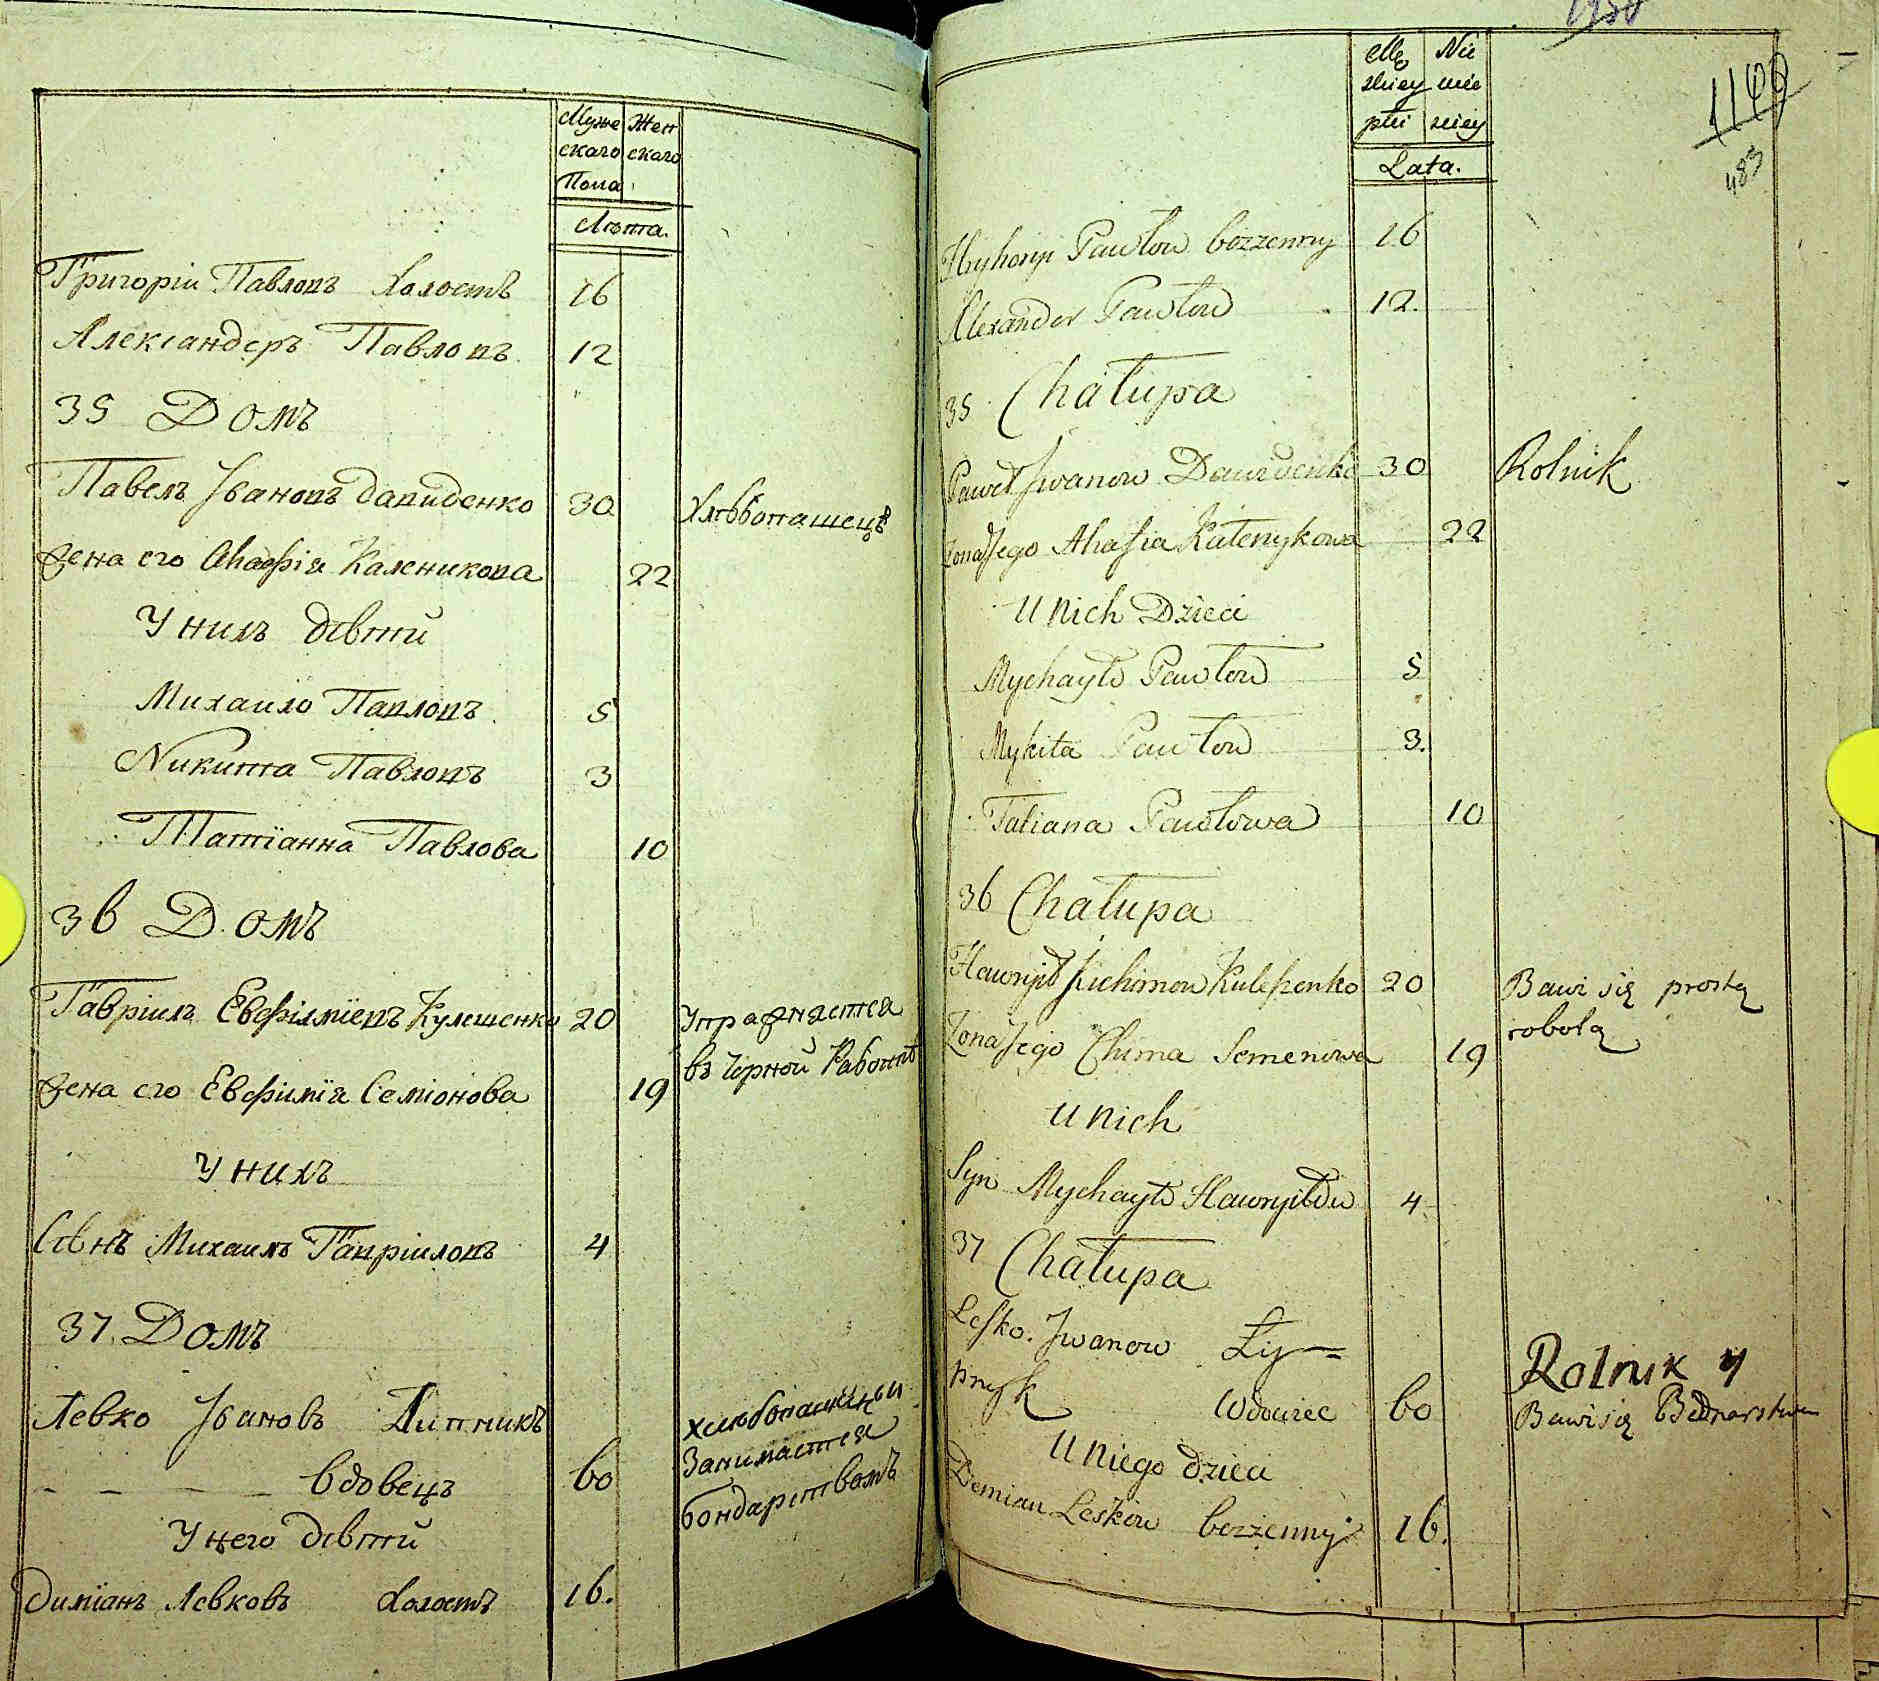 Муже Жен
скаго скаго
Пола
Лѣта.
Григоріи Павловъ Холостъ 16
Александеръ Павловъ 12
35 Домъ
Павелъ Івановъ Давиденко 30 Хлѣбопашецъ
Жена его Агафія Каленикова 22
У нихъ дѣти
Михаило Павловъ 5
Никита Павловъ 3
Татіанна Павлова 10
36 Домъ
Гавріилъ Евфиміевъ Кулешенко 20 Упражняется
въ Чорной Работѣ
Жена его Евфимія Семіонова 19
У нихъ
Сынъ Михаилъ Гавріиловъ 4
37. Домъ
Левко Івановъ Липникъ
вдовецъ 60
хлѣбопашецъ и
Занимается
бондарствомъ
У него дѣти
Диміанъ Левковъ Холостъ 16.
1140
483
Mę Nie
zkiey wie
płci sciey
Lata.
Hryhoryi Pawłow bezzenny 16
Alexander Pawłow 12.
35 Chałupa
Paweł Jwanow Dawidenko 30 Rolnik
Zona Jego Ahafia Kalenykowa 22
U nich Dzieci
Mychayło Pawłow 5
Mykita Pawłow 3.
Tatiana Pawłowa 10
36 Chałupa
Hawryił Jichimow Kuleszenko 20 Bawi się prostą
robotą
Zona Jego Chima Semenowa 19
U nich
Syn Mychayło Hawryiłow 4
37 Chałupa
Lesko. Jwanow Ły=
pnyk Wdowiec 60
Rolnik y
Bawi się Bednarstwem
U niego dzieci
Demian Leskow bezzenny 16.